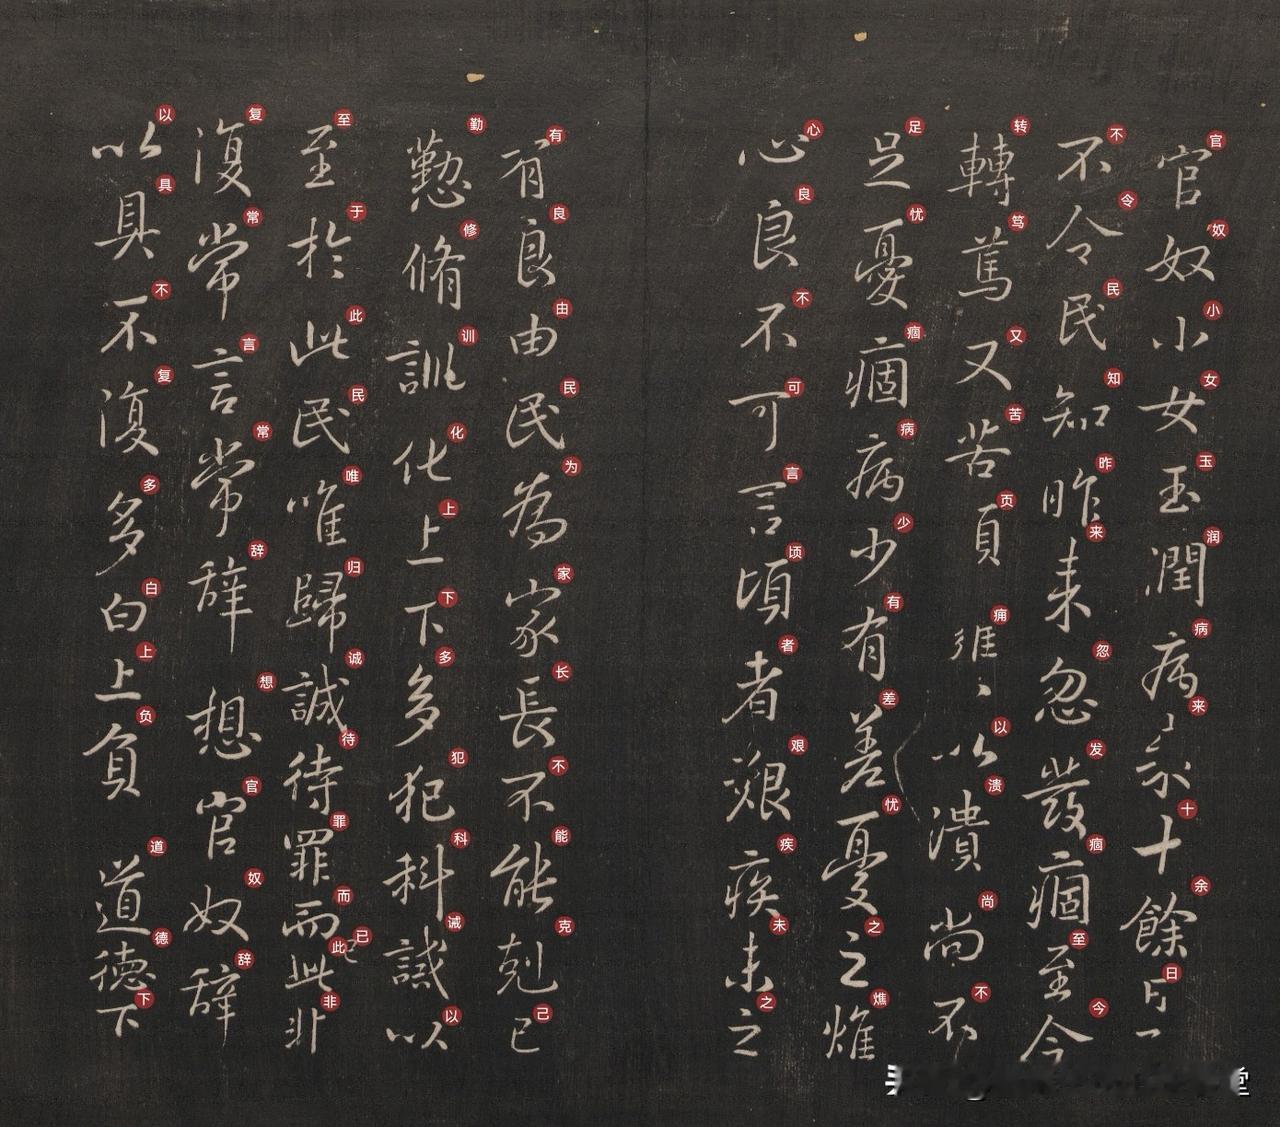 官奴小女玉潤病來十餘日
不令民知昨来忽發痼至今
轉篤又苦頁以潰尚不
足憂痼病少有差憂之燋
心良不可言頃者艱疾未之
有良由民為家長不能剋己
懃脩訓化上下多犯科誡以
至於此民唯歸誠待罪而已此非
復常言常辭想官奴辭
以具不復多白上負道德下
官奴小女玉润病来十余日
不令民知昨来忽发痼至今
转笃又苦页痈以溃尚不
足忧痼病少有差忧之燋
心良不可言顷者艰疾未之
有良由民为家长不能克己
勤修训化上下多犯科诫以
至于此民唯归诚待罪而已此非
复常言常辞想官奴辞
以具不复多白上负道德下